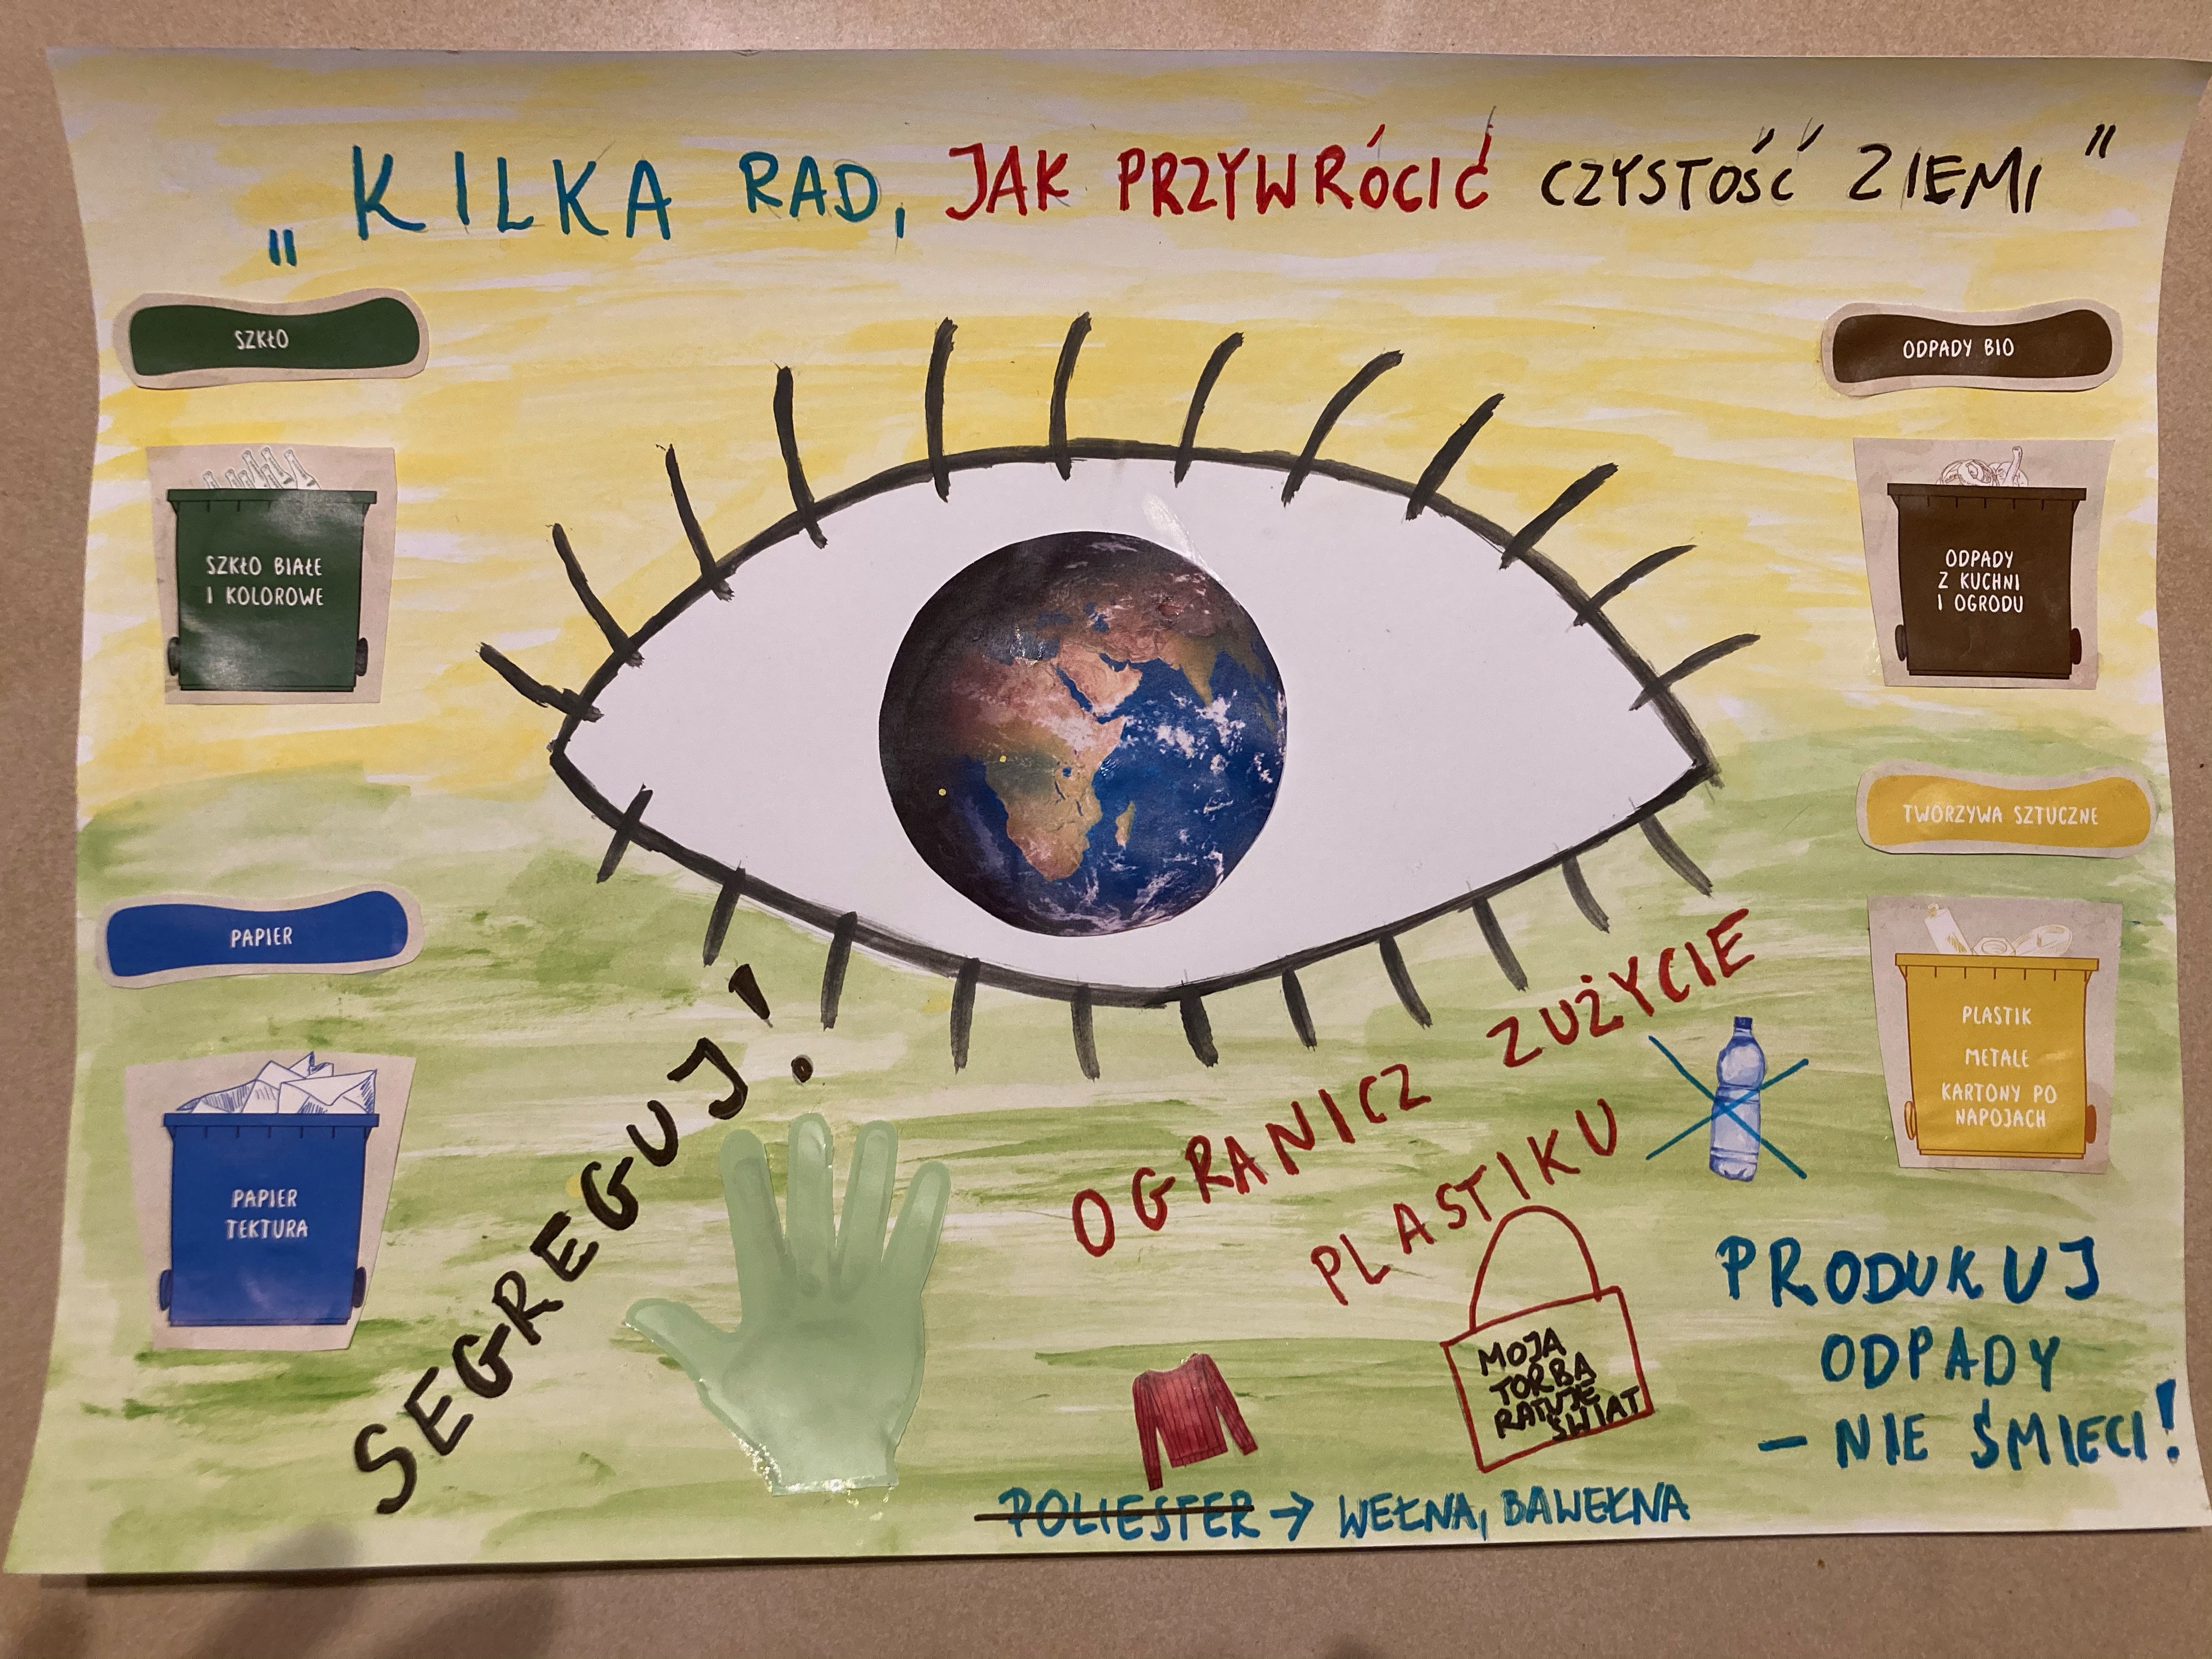 „KILKA RAD, JAK PRZYWRÓCIĆ CZYSTOŚĆ ZIEMI"
SZKŁO
SZKŁO BIAŁE
I KOLOROWE
ODPADY BIO
ODPADY
Z KUCHNI
I OGRODU
PAPIER
PAPIER
TEKTURA
TWORZYWA SZTUCZNE
PLASTIK
METALE
KARTONY PO
NAPOJACH
SEGREGUJ!
OGRANICZ ZUŻYCIE
PLASTIKU
MOJA
TORBA
RATUJE
ŚWIAT
PRODUKUJ
ODPADY
– NIE ŚMIECI!
POLIESTER → WEŁNA, BAWEŁNA